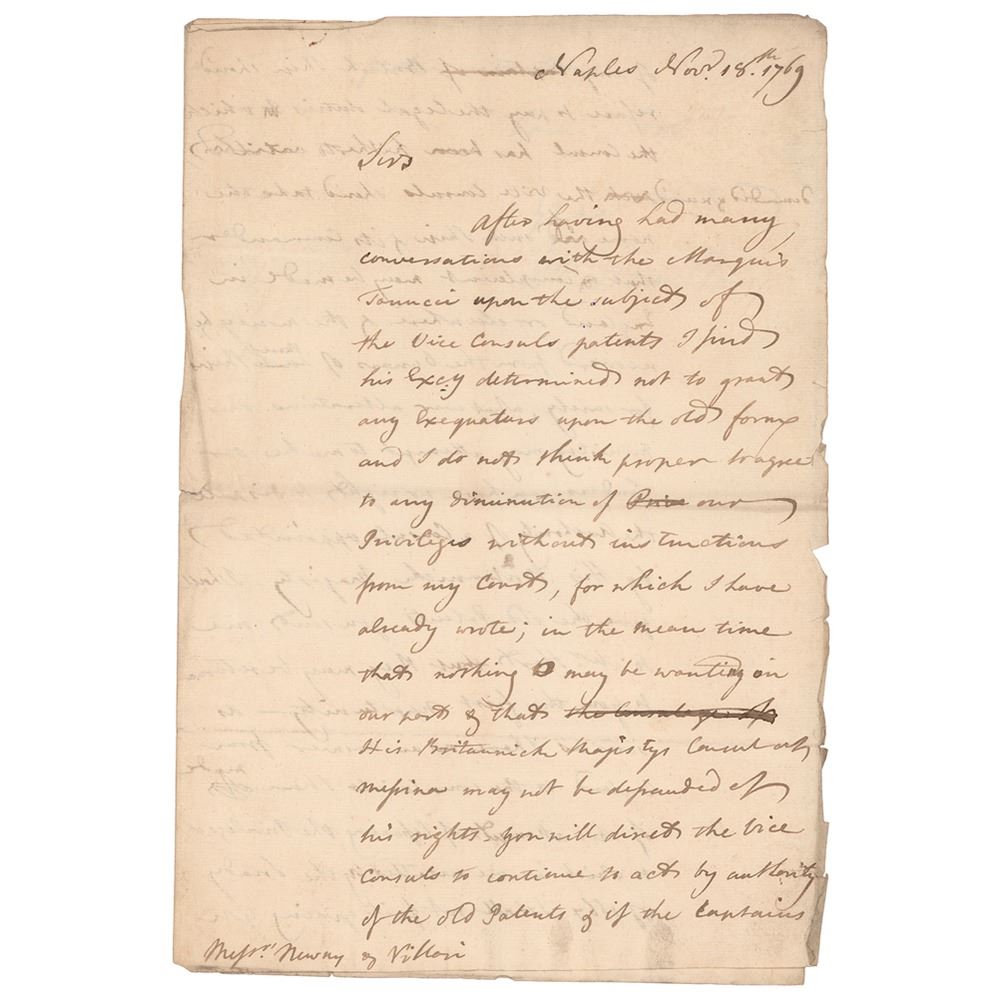 Naples Novr. 18.th 1769
Sirs
After having had many
conversations with the Marquis
Tanucci upon the subject of
the Vice Consuls patents I find
his Excy determined not to grant
any Exequaturs upon the old form
and I do not think proper to agree
to any diminution of Priv our
Privileges without instructions
from my Court, for which I have
already wrote; in the mean time
that nothing may be wanting on
our part & that the Consulage of
His Britannick Majestys Consul at
Messina may not be defrauded of
his rights you will direct the Vice
Consuls to continue to act by authority
of the old Patents & if the Captains
Messrs. Neway & Villari